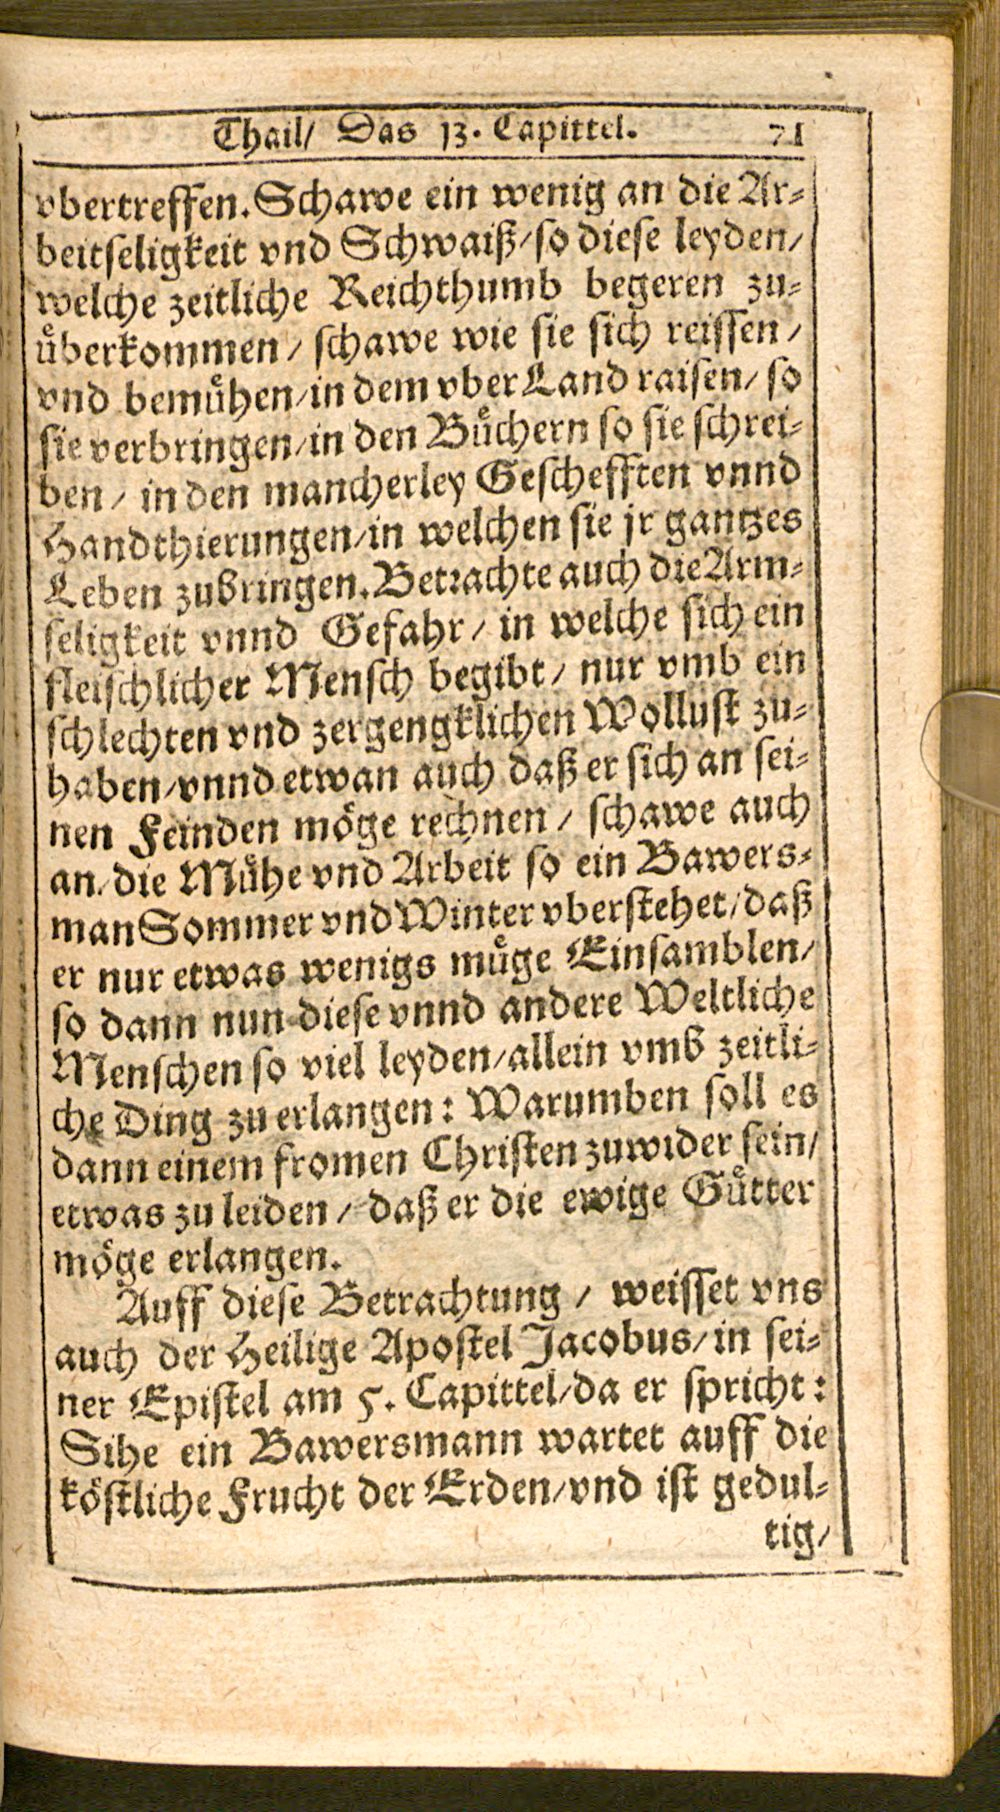 Thail/ Das 13. Capittel. 71
vbertreffen. Schawe ein wenig an die Ar-
beitseligkeit vnd Schwaiß/ so diese leyden/
welche zeitliche Reichthumb begeren zu-
uͤberkommen/ schawe wie sie sich reissen/
vnd bemuͤhen/ in dem vber Land raisen/ so
sie verbringen/ in den Buͤchern so sie schrei-
ben/ in den mancherley Geschefften vnnd
Handthierungen/ in welchen sie jr gantzes
Leben zubringen. Betrachte auch die Arm-
seligkeit vnnd Gefahr/ in welche sich ein
fleischlicher Mensch begibt/ nur vmb ein
schlechten vnd zergengklichen Wollust zu-
haben/ vnnd etwan auch daß er sich an sei-
nen Feinden moͤge rechnen/ schawe auch
an/ die Muͤhe vnd Arbeit so ein Bawers-
man Sommer vnd Winter vberstehet/ daß
er nur etwas wenigs muͤge Einsamblen/
so dann nun diese vnnd andere Weltliche
Menschen so viel leyden/ allein vmb zeitli-
che Ding zu erlangen: Warumben soll es
dann einem fromen Christen zuwider sein/
etwas zu leiden/ daß er die ewige Guͤtter
moͤge erlangen.
Auff diese Betrachtung/ weisset vns
auch der Heilige Apostel Jacobus/ in sei-
ner Epistel am 5. Capittel/ da er spricht:
Sihe ein Bawersmann wartet auff die
koͤstliche Frucht der Erden/ vnd ist gedul-
tig/